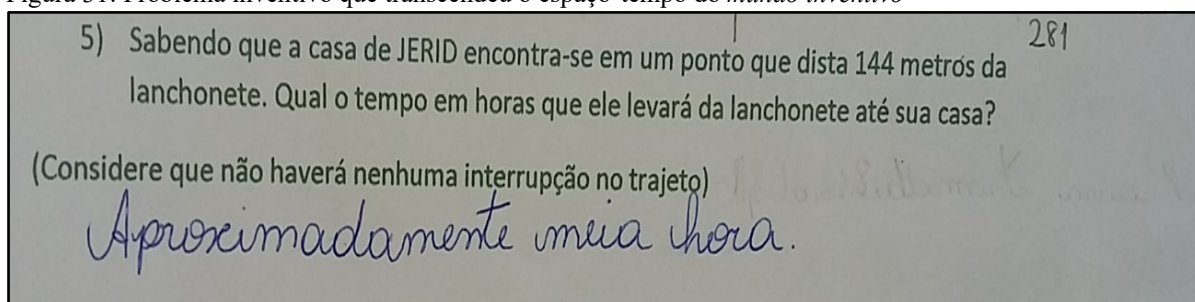 281
5) Sabendo que a casa de JERID encontra-se em um ponto que dista 144 metros da
lanchonete. Qual o tempo em horas que ele levará da lanchonete até sua casa?
(Considere que não haverá nenhuma interrupção no trajeto)
Aproximadamente meia hora.